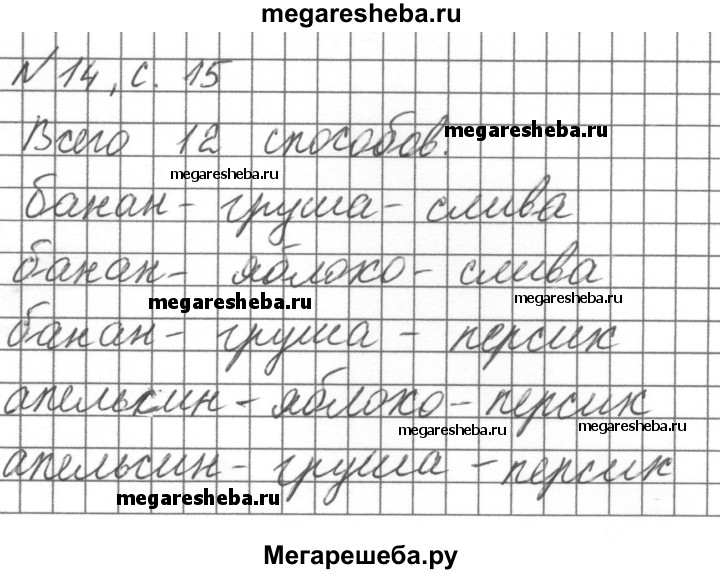 megaresheba.ru
N 14, с. 15
Всего 12 способов. megaresheba.ru
megaresheba.ru
банан - груша - слива
банан - яблоко - слива
megaresheba.ru megaresheba.ru
банан - груша - персик
апельсин - яблоко - персик
megaresheba.ru megaresheba.ru
апельсин - груша - персик
megaresheba.ru
Мегарешеба.ру